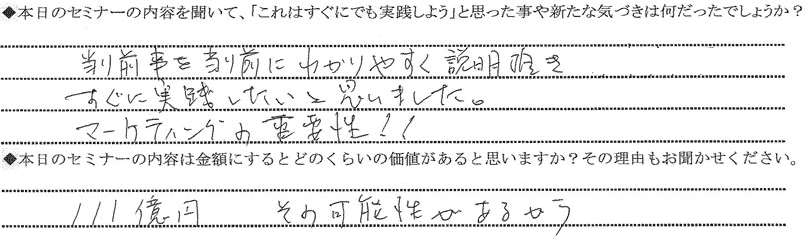 ◆本日のセミナーの内容を聞いて、「これはすぐにでも実践しよう」と思った事や新たな気づきは何だったでしょうか?
当り前事を当り前にわかりやすく説明頂き
すぐに実践したいと思いました。
マーケティングの重要性!!
◆本日のセミナーの内容は金額にするとどのくらいの価値があると思いますか?その理由もお聞かせください。
111億円 その可能性があるから